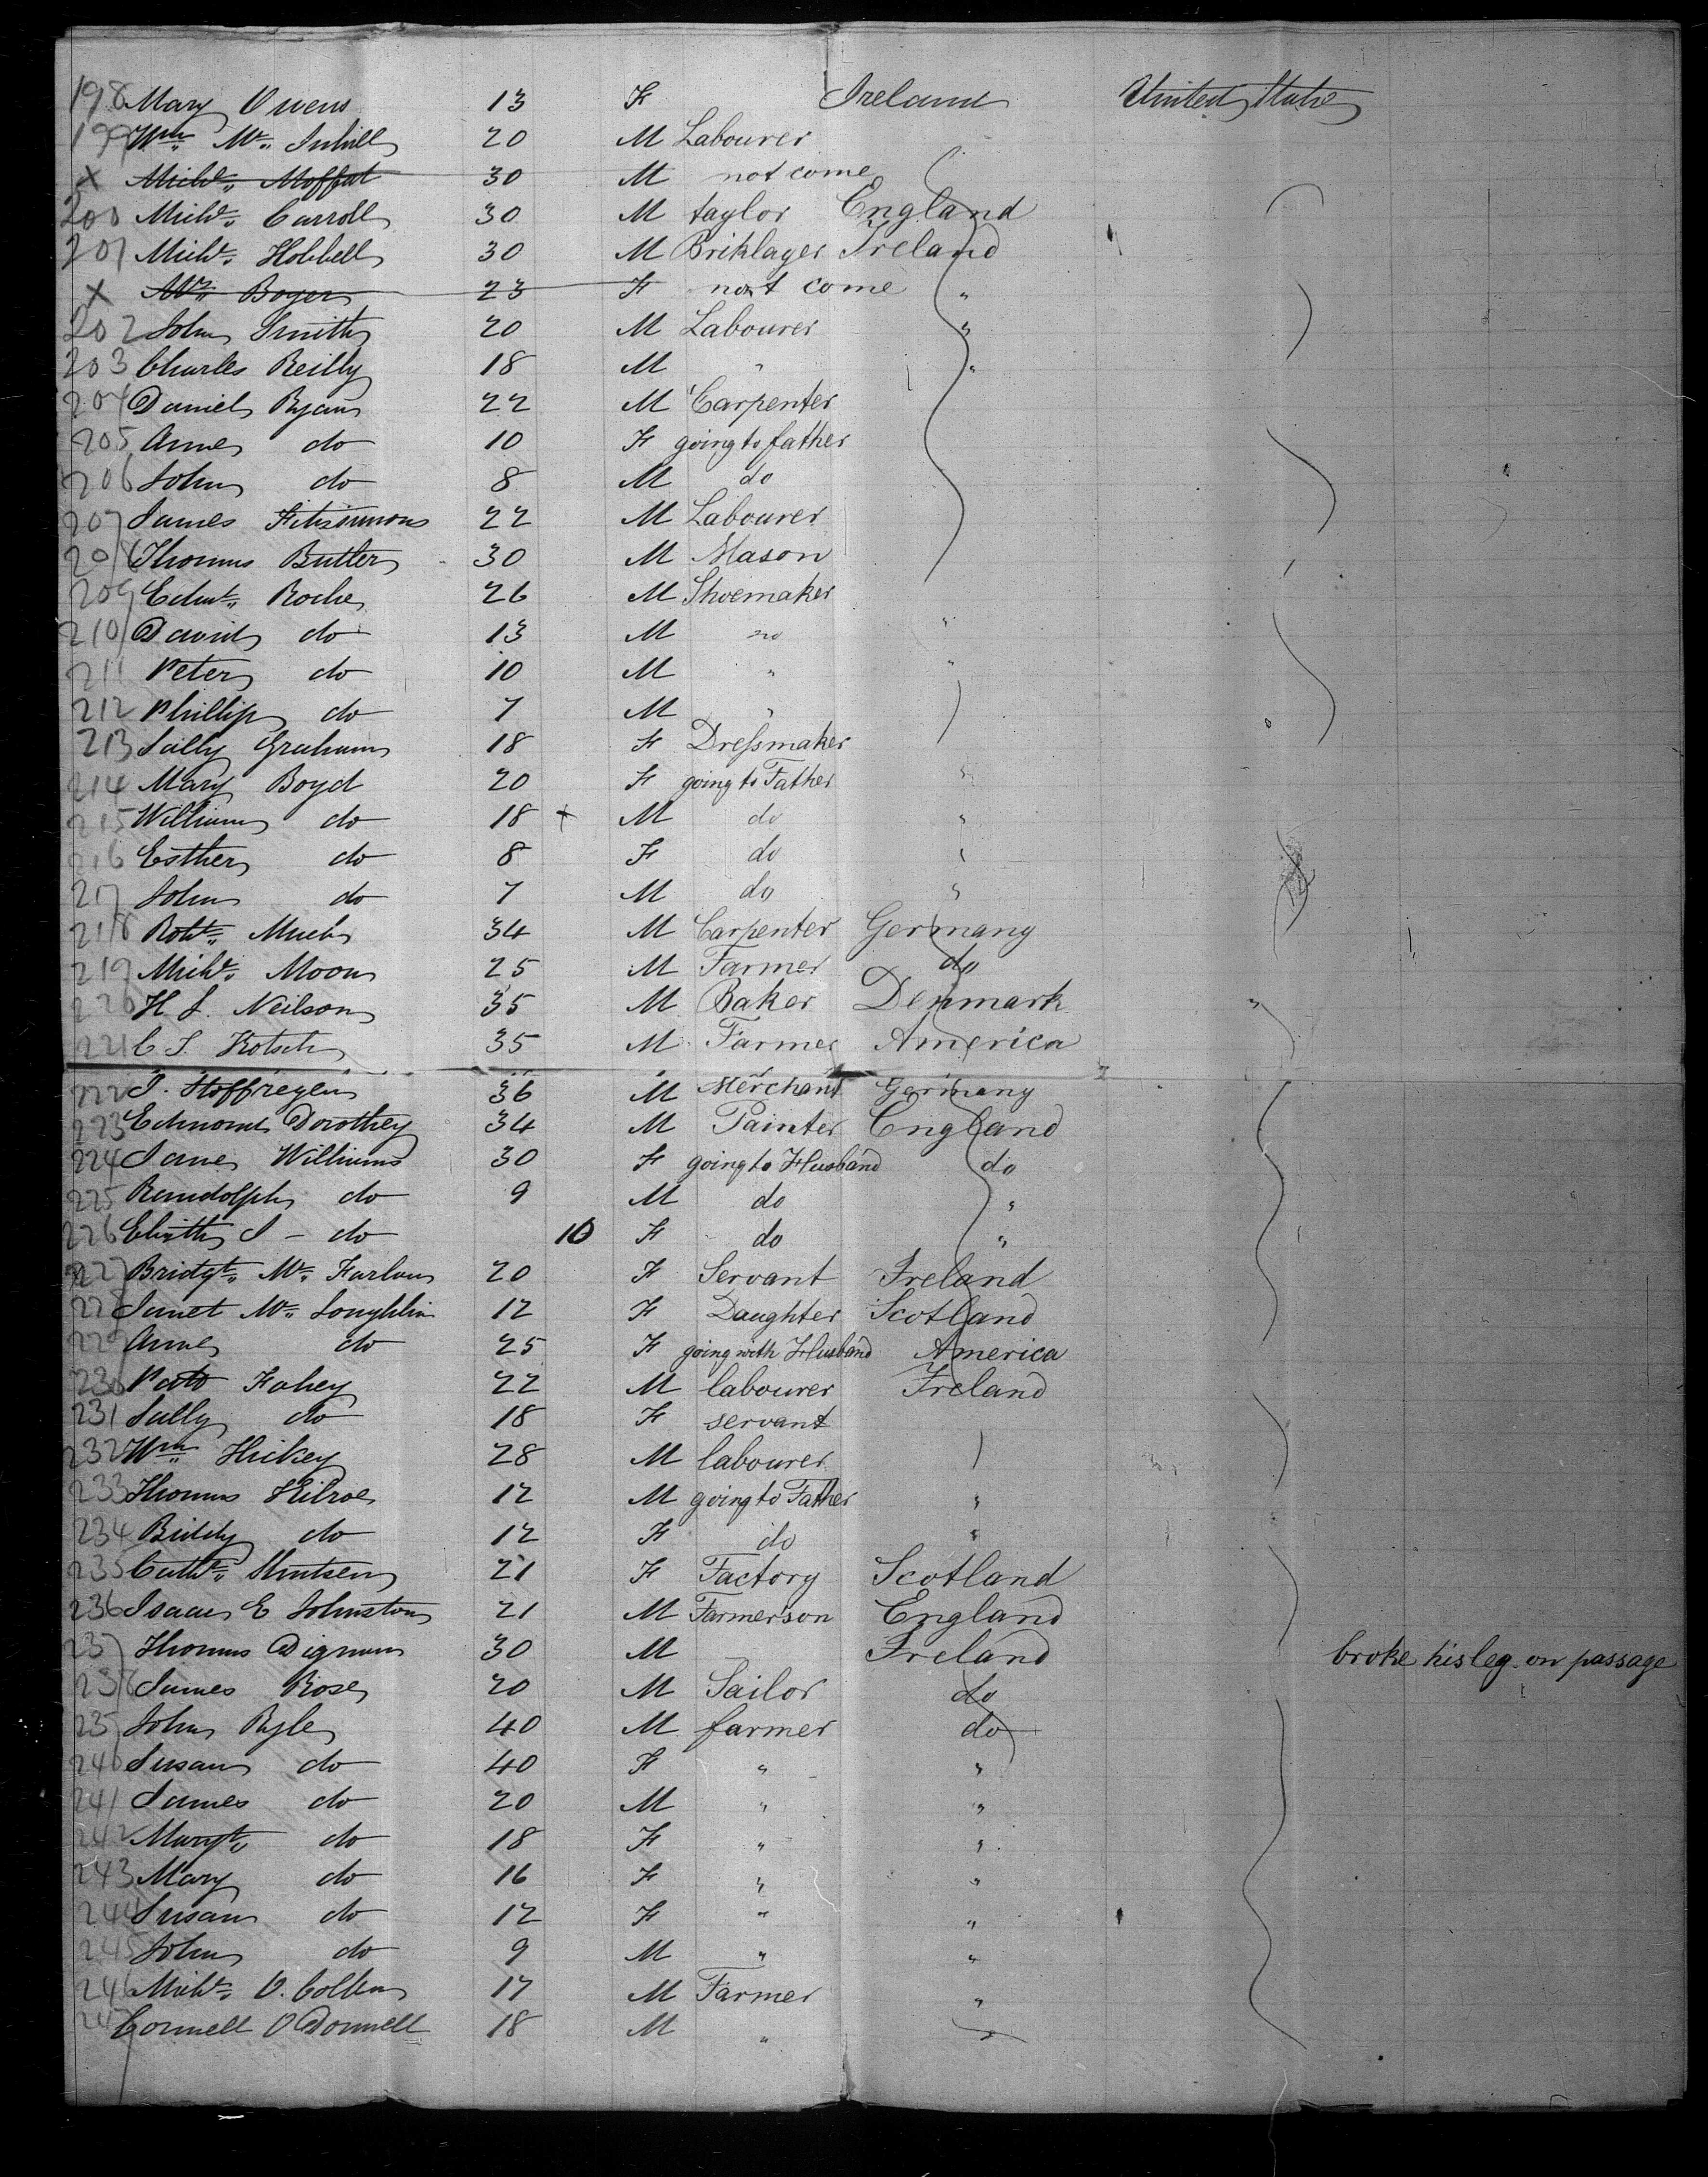 198 Mary Owens 13 F Ireland United States
199 Wm „ Mc „ 20 M Labourer
x Michl „ Moffat 30 M not come
200 Michl „ Carroll 30 M taylor England
201 Michl „ Hobbell 30 M Briklager Ireland
x Boyer 23 F not come „
202 John Smith 20 M Labourer „
203 Charles Reilly 18 M „ „
204 Daniel Ryan 22 M Carpenter
205 Anne do 10 F going to father
206 John do 8 M do
207 James Fitzsimmons 22 M Labourer
208 Thomas Butler 30 M Mason
209 Edwd „ Roche 26 M Shoemaker
210 David do 13 M no „
211 Peter do 10 M „ „
212 Phillip do 7 M „
213 Sally Graham 18 F Dressmaker
214 Mary Boyd 20 F going to Father „
215 William do 18 + M do „
216 Esther do 8 F do „
217 John do 7 M do „
218 Robt „ 34 M Carpenter Germany
219 Michl „ Moon 25 M Farmer do
220 H S. Neilson 35 M Baker Denmark
221 C S. Kotsch 35 M Farmer America
222 J. Stoffregen 36 M Merchant Germany
223 Edmond Dorothey 34 M Painter England
224 Jane Williams 30 F going to Husband do
225 Randolph do 9 M do „
226 Elizth J - do 10 F do „
227 Bridgt „ Mc „ Farlan 20 F Servant Ireland
228 Janet Mc „ Loughlin 12 F Daughter Scotland
229 Anne do 25 F going with Husband America
230 Patk Fahey 22 M labourer Ireland
231 Sally do 18 F servant
232 Wm „ Hickey 28 M labourer
233 Thomas Kilroe 12 M going to Father „
234 Biddy do 12 F do „
235 Cathe „ 21 F Factory Scotland
236 Isaac E Johnston 21 M Farmerson England
237 Thomas Dignum 30 M Ireland broke his leg on passage
238 James Rose 20 M Sailor do
239 John Ryle 40 M farmer do
240 Susan do 40 F „ „
241 James do 20 M „ „
242 Margt „ do 18 F „ „
243 Mary do 16 F „ „
244 Susan do 12 F „ „
245 John do 9 M „ „
246 Michl „ O. 17 M Farmer „
247 Connell O Donnell 18 M „ „